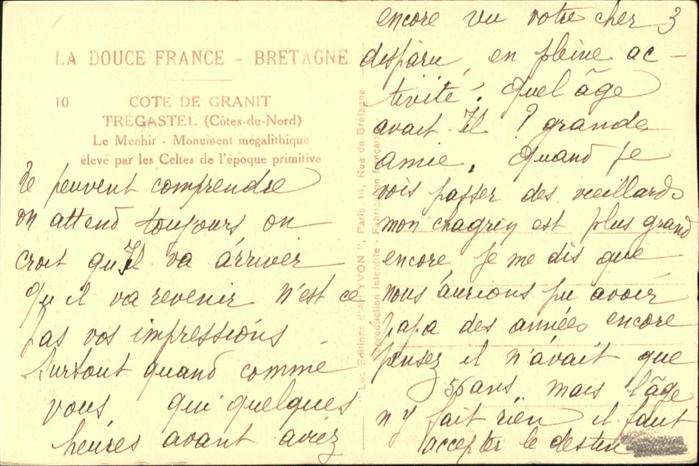 LA DOUCE FRANCE - BRETAGNE
10 COTE DE GRANIT
TREGASTEL (Côtes-du-Nord)
Le Menhir - Monument mégalithique
élevé par les Celtes de l'époque primitive
le peuvent comprendre
on attend toujours on
croit qu'Il va arriver
Qu il va revenir N'est ce
pas vos impressions
Surtout quand comme
vous qui quelques
heures avant aviez
"Les Editions d'Art YVON", Paris, 14, Rue de Bretagne
Reproduction Interdite - Fabrication française
encore vu votre cher 3
disparu, en pleine ac-
tivité! Quel âge
avait Il ? grande
amie, Quand je
vois passer des vieillards
mon chagrin est plus grand
encore je me dis que
nous aurions pu avoir
papa des années encore
pensez il n'avait que
55 ans, mais l'âge
n'y fait rien il faut
accepter le destin